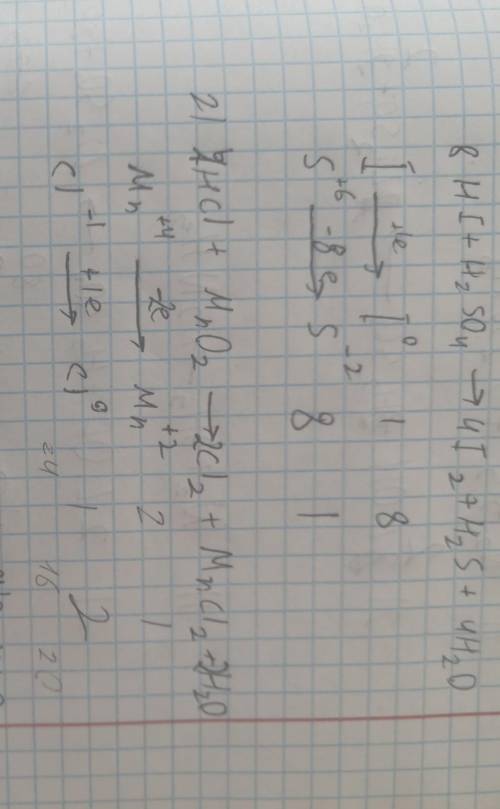 8 HI + H2SO4 → 4I2 + H2S + 4H2O
I⁻ +1e → I⁰ 1 8
S⁺⁶ -8e → S⁻² 8 1
2) HCl + MnO2 → 2Cl2 + MnCl2 + 2H2O
Mn⁺⁴ -2e → Mn⁺² 2 1
Cl⁻¹ +1e → Cl⁰ 1 2
24 16 20